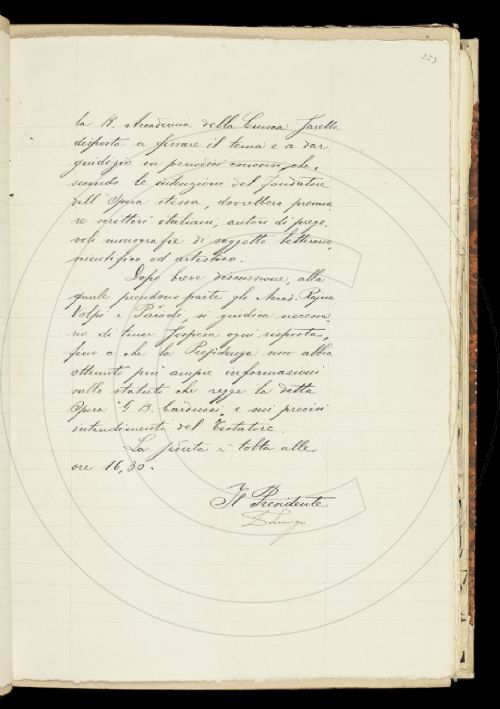 253
la R. Accademia della Crusca sarebbe
disposta a fissare il tema e a dar
giudizio su periodici concorsi, che,
secondo le intenzioni del fondatore
dell'Opera stessa, dovrebbero premia
re scrittori italiani, autori di prege
voli monografie di soggetto letterario,
scientifico ed artistico.
Dopo breve discussione, alla
quale prendono parte gli Accad. Rajna
Volpi e Parodi, si giudica necessa
rio di tener sospesa ogni risposta,
fino a che la Presidenza non abbia
ottenuto più ampie informazioni
sullo statuto che regge la detta
Opera "G. B. Carducci" e sui precisi
intendimenti del Testatore.
La seduta è tolta alle
ore 16,30.
Il Presidente